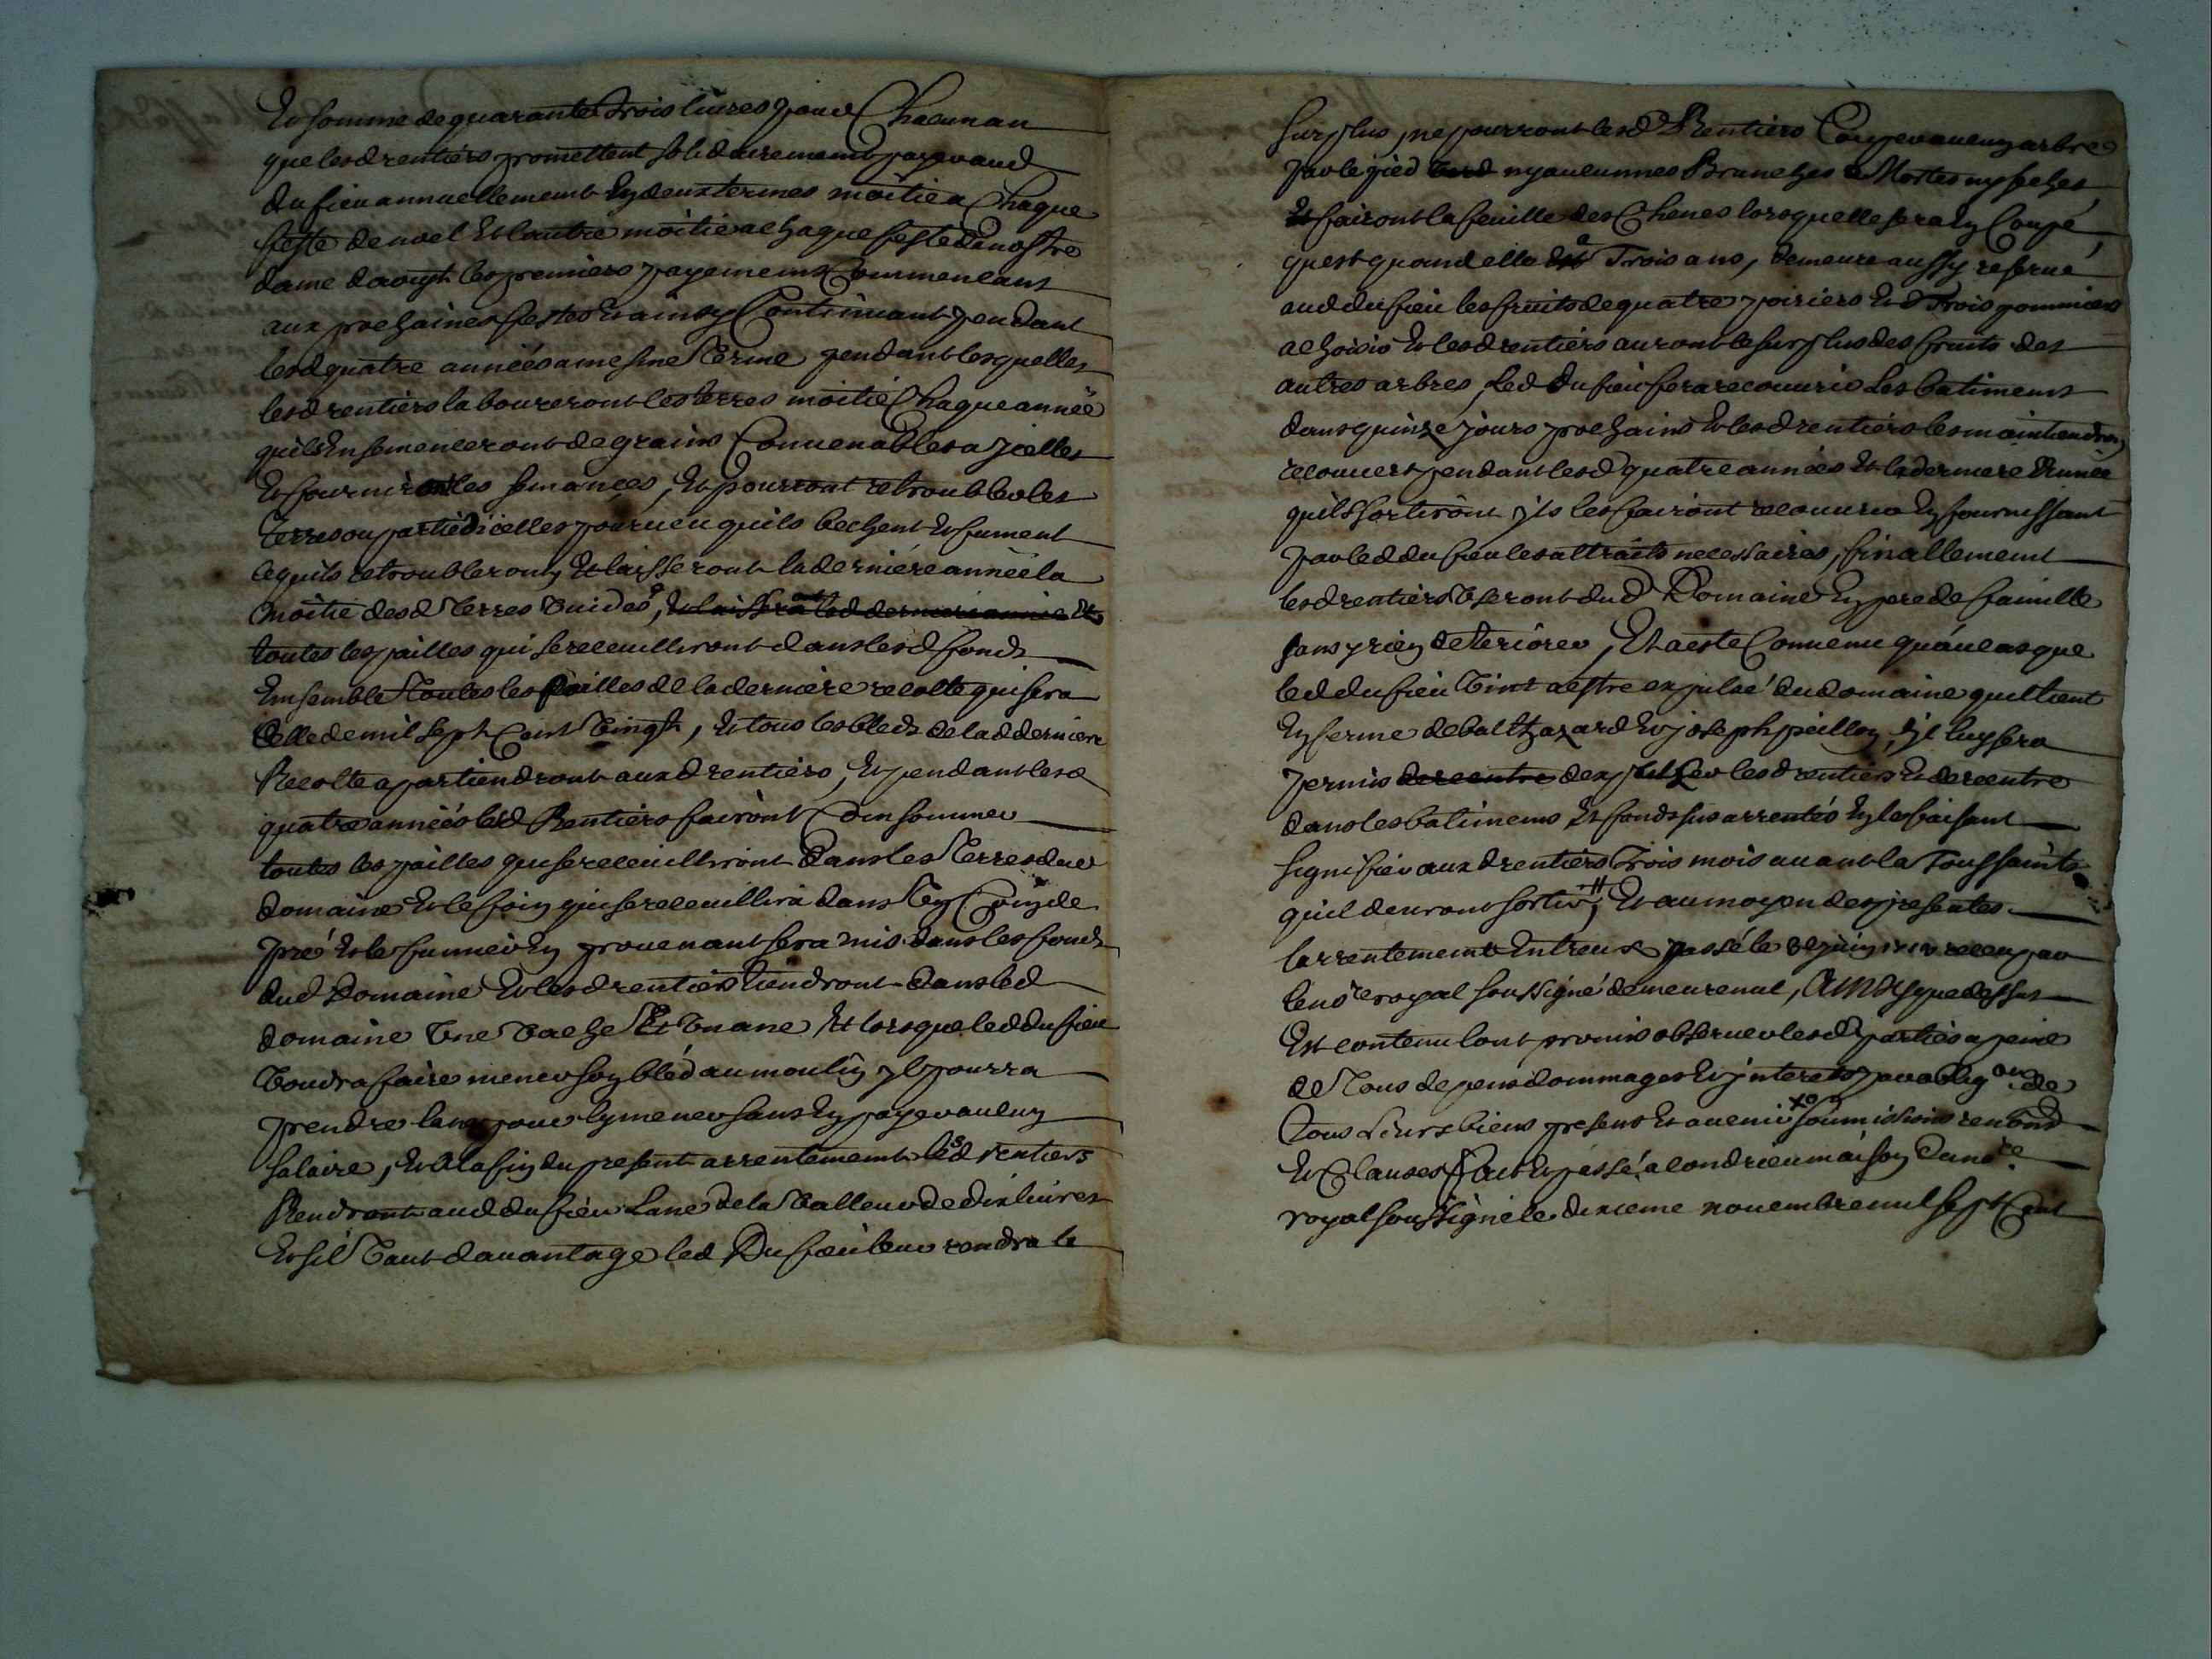 Et somme de quarante Trois livres pour Chacun an
que lesd rentiers promettent solidairement payer aud
du fieu annuellement En deux termes moitie a Chaque
feste de noel Et lautre moitie a chaque feste de nostre
dame daougst les premiers payements Commencans
aux prochaines festes Et ainsy Continuant pendant
lesd quatre années a mesme Terme pendant lesquelles
lesd rentiers laboureront les terres moitié Chaque année
quils Ensemenceront de grains Convenables a jcelles
Et fourniront les semances, Et pourront retroubler les
Terres ou partie dicelles pourveu quils bechent Et fument
ce quils retroubleront Et laisseront la derniére année la
moitie desd Terres Vuides, Et laisseront led derniere année Et
toutes les pailles qui se receuilliront dans lesd fonds
Ensemble Toutes les pailles de la derniere recolte qui sera
Celle de mil sept Cent Vingt, Et tous les bleds de lad derniere
Recolte apartiendront auxd rentiers, Et pendant lesd
quatre années lesd Rentiers fairont Consommer
toutes les pailles que se receuilliront dans les Terres dud
domaine Et le foin qui se receuillira dans Un Coin de
pré Et le fumier En provenant sera mis dans les fonds
dud Domaine Et lesd rentiers tiendront dans led
domaine Une Vache Et Un ane Et lorsque led du fieu
Voudra faire mener son bléd au moulin jl pourra
prendre lane pour ly mener sans En payer aucun
salaire, Et A la fin du present arrentement lesd rentiers
Rendront aud du fieu Lane de la Valleur de dix livres
Et sil Vaut davantage led Du fieu leur rendra le
surplus, ne pourront lesd Rentiers Couper aucun arbre
par le pied ny aucunnes Branches Mortes ny seches
Et fairont la feuille des Chenes lorsquelle sera En Coupé,
quest quand elle a Trois ans, demeure aussy reservé
aud du fieu les fruits de quatre poiriers Et d Trois pommiers
a choisir Et lesd rentiers auront le surplus des fruits des
autres arbres, led du fieu fera recouvrir Les batiments
dans quinze jours prochains Et lesd rentiers les maintiendron
recouvers pendant lesd quatre années Et la derniere Année
quils sortiront jls les fairont recouvrir En fournissant
par led du fieu les attraits necessaires, finallement
lesd rentiers Useront dud Domaine En pere de famille
sans y rien deteriorer, Et a esté Convenu quau cas que
led du fieu Vint a estre expulsé du domaine quil tient
En ferme de balthazard Et joseph peillon, jl luy sera
permis de rentre dexpulser lesd rentiers Et de rentre
dans les batiments Et fonds sus arrentés En les faisant
signifier auxd rentiers Trois mois avant la Toussaints
quil devront sortir, Et au moyen des presentes
larrentement Entreux passé le juin receu par
le no.re royal soussigné demeure nul, AINSY que dessus
Est contenu lont promis observer lesd parties a peine
de Tous depens dommages Et jnterets par oblig.on de
Tous Leurs biens presens Et avenir soumissions renonc
Et Clauses Fait Et passé a condrieu maison du no.re
royal soussigné le dixieme novembre mil sept Cent